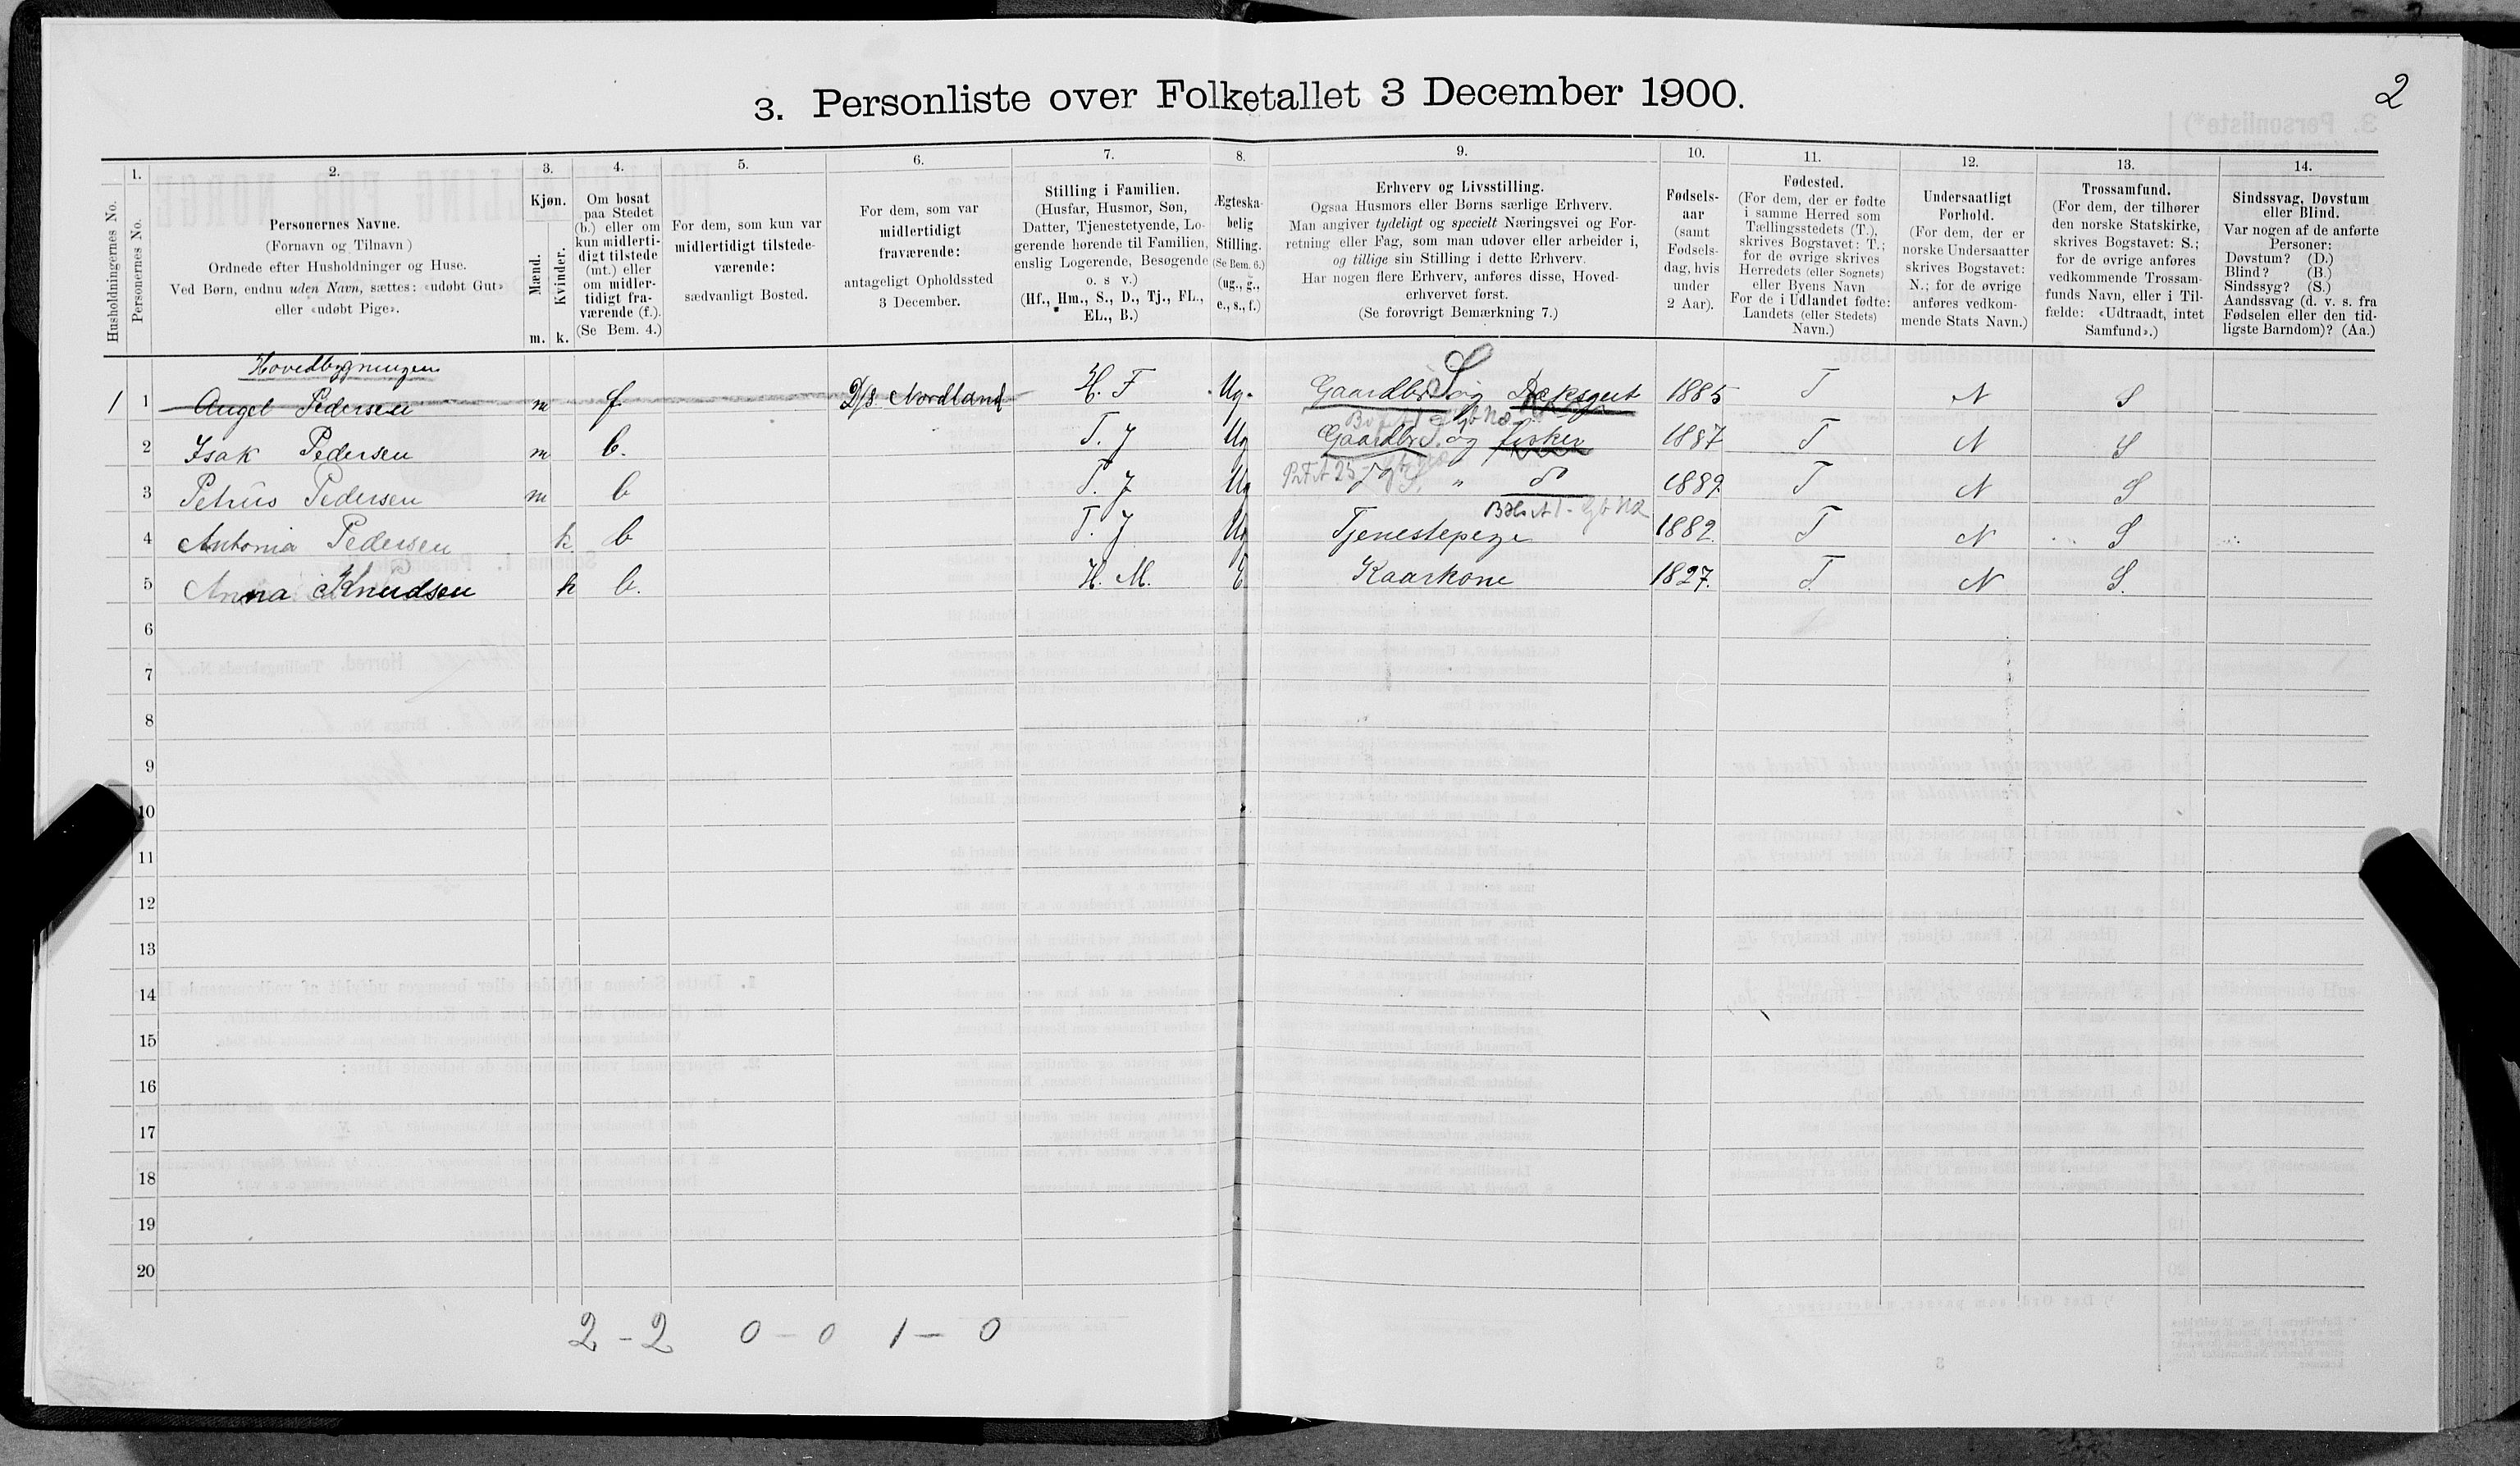 2
3. Personliste over Folketallet 3 December 1900.
Husholdningernes No.
1.
Personernes No.
2.
Personernes Navne.
(Fornavn og Tilnavn)
Ordnede efter Husholdninger og Huse.
Ved Børn, endnu uden Navn, sættes: «udøbt Gut»
eller «udøbt Pige».
3.
Kjøn.
Mænd.
Kvinder.
m. k.
4.
Om bosat
paa Stedet
(b.) eller om
kun midlerti-
digt tilstede
(mt.) eller
om midler-
tidigt fra-
værende (f.).
(Se Bem. 4.)
5.
For dem, som kun var
midlertidigt tilstede-
værende:
sædvanligt Bosted.
6.
For dem, som var
midlertidigt
fraværende:
antageligt Opholdssted
3 December.
7.
Stilling i Familien.
(Husfar, Husmor, Søn,
Datter, Tjenestetyende, Lo-
gerende hørende til Familien,
enslig Logerende, Besøgende
o. s v.)
(Hf., Hm., S., D., Tj., FL.,
EL., B.)
8.
Ægteska-
belig
Stilling.
(Se Bem. 6.)
(ug., g.,
e., s., f.)
9.
Erhverv og Livsstilling.
Ogsaa Husmors eller Børns særlige Erhverv.
Man angiver tydeligt og specielt Næringsvei og For-
retning eller Fag, som man udøver eller arbeider i,
og tillige sin Stilling i dette Erhverv.
Har nogen flere Erhverv, anføres disse, Hoved-
erhvervet først.
(Se forøvrigt Bemærkning 7.)
10.
Fødsels-
aar
(samt
Fødsels-
dag, hvis
under
2 Aar).
11.
Fødested.
(For dem, der er fødte
i samme Herred som
Tællingsstedets (T.),
skrives Bogstavet: T.;
for de øvrige skrives
Herredets (eller Sognets)
eller Byens Navn
For de i Udlandet fødte:
Landets (eller Stedets)
Navn.)
12.
Undersaatligt
Forhold.
(For dem, der er
norske Undersaatter
skrives Bogstavet:
N.; for de øvrige
anføres vedkom-
mende Stats Navn.)
13.
Trossamfund.
(For dem, der tilhører
den norske Statskirke,
skrives Bogstavet: S.;
for de øvrige anføres
vedkommende Trossam-
funds Navn, eller i Til-
fælde: «Udtraadt, intet
Samfund».)
14.
Sindssvag, Døvstum
eller Blind.
Var nogen af de anførte
Personer:
Døvstum? (D.)
Blind? (B.)
Sindssyg? (S.)
Aandssvag (d. v. s. fra
Fødselen eller den tid-
ligste Barndom)? (Aa.)
Hovedbygningen
1 1 Angel Pedersen m f D/s Nordland H. F Ug. Gaardbr. S og Dæksgut 1885 T N S
2 Isak Pedersen m b. T. J Ug Gaardbr. S. og fisker 1887 T N S
3 Petrus Pedersen m b T. J Ug " do 1889 T N S
4 Antonia Pedersen k b T. J Ug Tjenestepige 1882 T N S
5 Anna Knudsen k b. H. M. E Kaarkone 1827. T. N S.
6
7
8
9
10
11
12
13
14
15
16
17
18
19
20
2 - 2 0 - 0 1 - 0